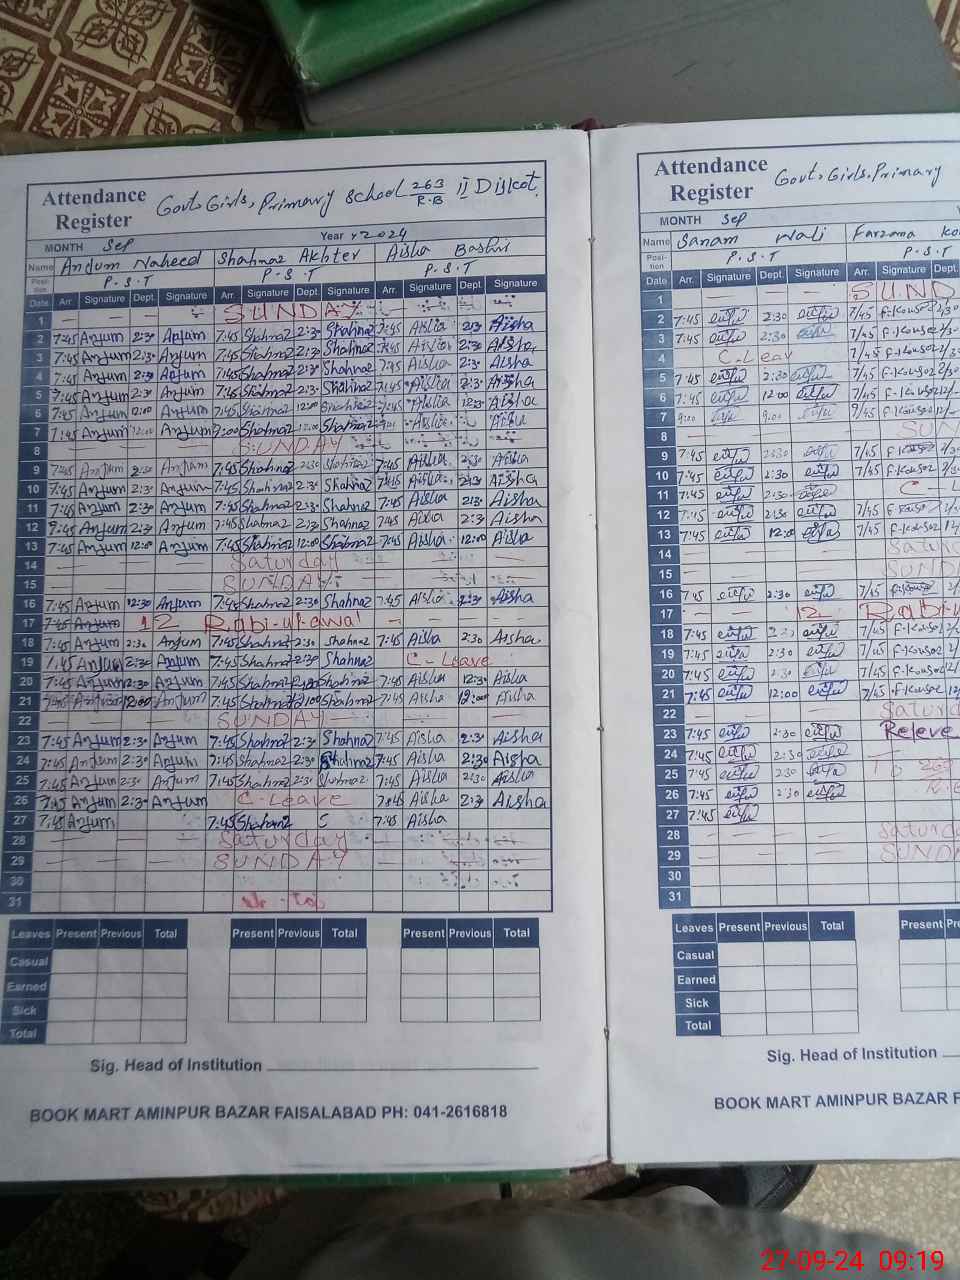 Attendance Register Govt. Girls, Primary School 263/R.B II Diskot.
MONTH Sep Year 2024
Name Andum Naheed Shahnaz Akhter Aisha Bashir
Position P.S.T P.S.T P.S.T
Date Arr. Signature Dept. Signature Arr. Signature Dept. Signature Arr. Signature Dept. Signature
1 SUNDAY
2 7:45 Anjum 2:30 Anjum 7:45 Shahnaz 2:30 Shahnaz 7:45 Aisha 2:30 Aisha
3 7:45 Anjum 2:30 Anjum 7:45 Shahnaz 2:30 Shahnaz 7:45 Aisha 2:30 Aisha
4 7:45 Anjum 2:30 Anjum 7:45 Shahnaz 2:30 Shahnaz 7:45 Aisha 2:30 Aisha
5 7:45 Anjum 2:30 Anjum 7:45 Shahnaz 2:30 Shahnaz 7:45 Aisha 2:30 Aisha
6 7:45 Anjum 12:00 Anjum 7:45 Shahnaz 12:00 Shahnaz 7:45 Aisha Aisha
7 7:45 Anjum 12:00 Anjum 9:00 Shahnaz 12:00 Shahnaz Aisha Aisha
8 SUNDAY
9 7:45 Anjum 2:30 Anjum 7:45 Shahnaz 2:30 Shahnaz 7:45 Aisha 2:30 Aisha
10 7:45 Anjum 2:30 Anjum 7:45 Shahnaz 2:30 Shahnaz 7:45 Aisha 2:30 Aisha
11 7:45 Anjum 2:30 Anjum 7:45 Shahnaz 2:30 Shahnaz 7:45 Aisha 2:30 Aisha
12 7:45 Anjum 2:30 Anjum 7:45 Shahnaz 2:30 Shahnaz 7:45 Aisha 2:30 Aisha
13 7:45 Anjum 12:00 Anjum 7:45 Shahnaz 12:00 Shahnaz 7:45 Aisha 12:00 Aisha
14 Saturday
15 SUNDAY
16 7:45 Anjum 2:30 Anjum 7:45 Shahnaz 2:30 Shahnaz 7:45 Aisha 2:30 Aisha
17 7:45 Anjum 12 Rabi-ul-awal
18 7:45 Anjum 2:30 Anjum 7:45 Shahnaz 2:30 Shahnaz 7:45 Aisha 2:30 Aisha
19 7:45 Anjum 2:30 Anjum 7:45 Shahnaz 2:30 Shahnaz C-Leave
20 7:45 Anjum 2:30 Anjum 7:45 Shahnaz Shahnaz 7:45 Aisha 12:30 Aisha
21 7:45 Anjum 12:00 Anjum 7:45 Shahnaz 12:00 Shahnaz 7:45 Aisha 12:00 Aisha
22 SUNDAY
23 7:45 Anjum 2:30 Anjum 7:45 Shahnaz 2:30 Shahnaz 7:45 Aisha 2:30 Aisha
24 7:45 Anjum 2:30 Anjum 7:45 Shahnaz 2:30 Shahnaz 7:45 Aisha 2:30 Aisha
25 7:45 Anjum 2:30 Anjum 7:45 Shahnaz 2:30 Shahnaz 7:45 Aisha 2:30 Aisha
26 7:45 Anjum 2:30 Anjum C-Leave 7:45 Aisha 2:30 Aisha
27 7:45 Anjum 7:45 Shahnaz 7:45 Aisha
28 Saturday
29 SUNDAY
30
31
Leaves Present Previous Total Present Previous Total Present Previous Total
Casual
Earned
Sick
Total
Sig. Head of Institution
BOOK MART AMINPUR BAZAR FAISALABAD PH: 041-2616818
Attendance Register Govt. Girls, Primary
MONTH Sep
Name Sanam Wali Farzana
Position P.S.T P.S.T
Date Arr. Signature Dept. Signature Arr. Signature Dept.
1 SUND
2 7:45 2:30 7/45 F.Kousar
3 7:45 2:30 7/45 F.Kousar
4 C-Leav 7/45 F.Kousar
5 7:45 2:30 7/45 F.Kousar
6 7:45 12:00 7/45 F.Kousar
7 9:00 9:00 F.Kousar
8 SUN
9 7:45 2:30 7/45 F.Kousar
10 7:45 2:30 7/45 F.Kousar
11 7:45 2:30 C-L
12 7:45 2:30 7/45 F.Kousar
13 7:45 12:00 7/45 F.Kousar
14 Satur
15 SUND
16 7:45 2:30 7/45 F.Kousar
17 12 Rabi-u
18 7:45 7/45 F.Kousar
19 7:45 2:30 7/45 F.Kousar
20 7:45 2:30 7/45 F.Kousar
21 7:45 12:00 7/45 F.Kousar
22 Saturd
23 7:45 2:30 Releve
24 7:45 2:30
25 7:45 2:30 To
26 7:45 2:30
27 7:45
28 Saturd
29 SUND
30
31
Leaves Present Previous Total Present
Casual
Earned
Sick
Total
Sig. Head of Institution
BOOK MART AMINPUR BAZAR
27-09-24 09:19